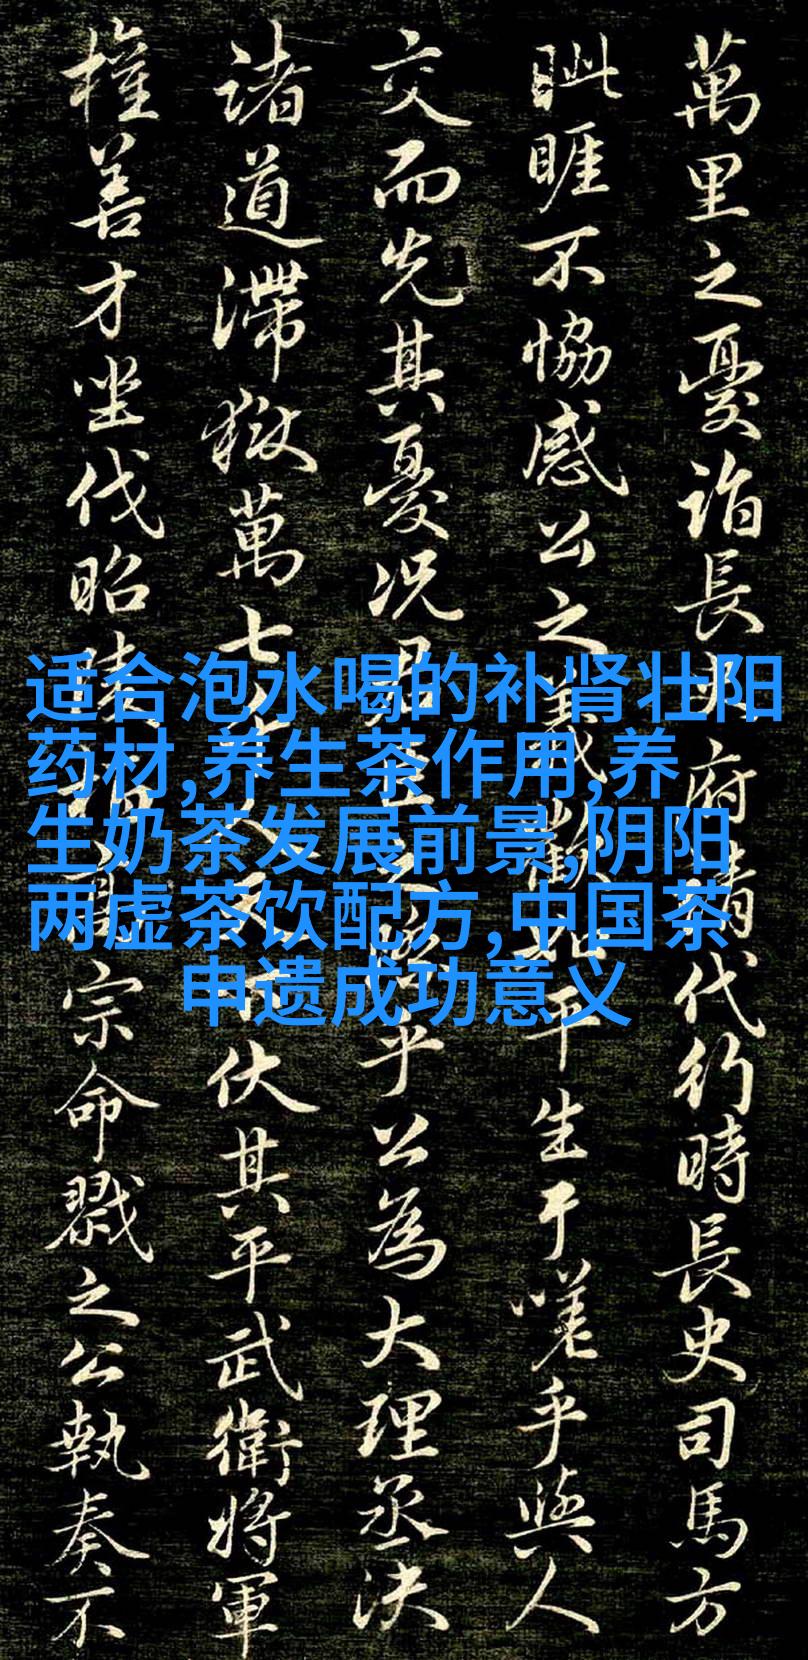 萬里之憂詣長府請代行時長史司馬方
眦睚不恊感公之義歡如平生于嗟乎與人
交而先其憂況君臣之際乎公為大理丞決
諸道滯獄萬七千人天下伏其平武衛將軍
權善才坐伐昭陵柏高宗命戮之公執奏不
适合泡水喝的补肾壮阳
药材,养生茶作用,养
生奶茶发展前景,阴阳
两虚茶饮配方,中国茶
申遗成功意义